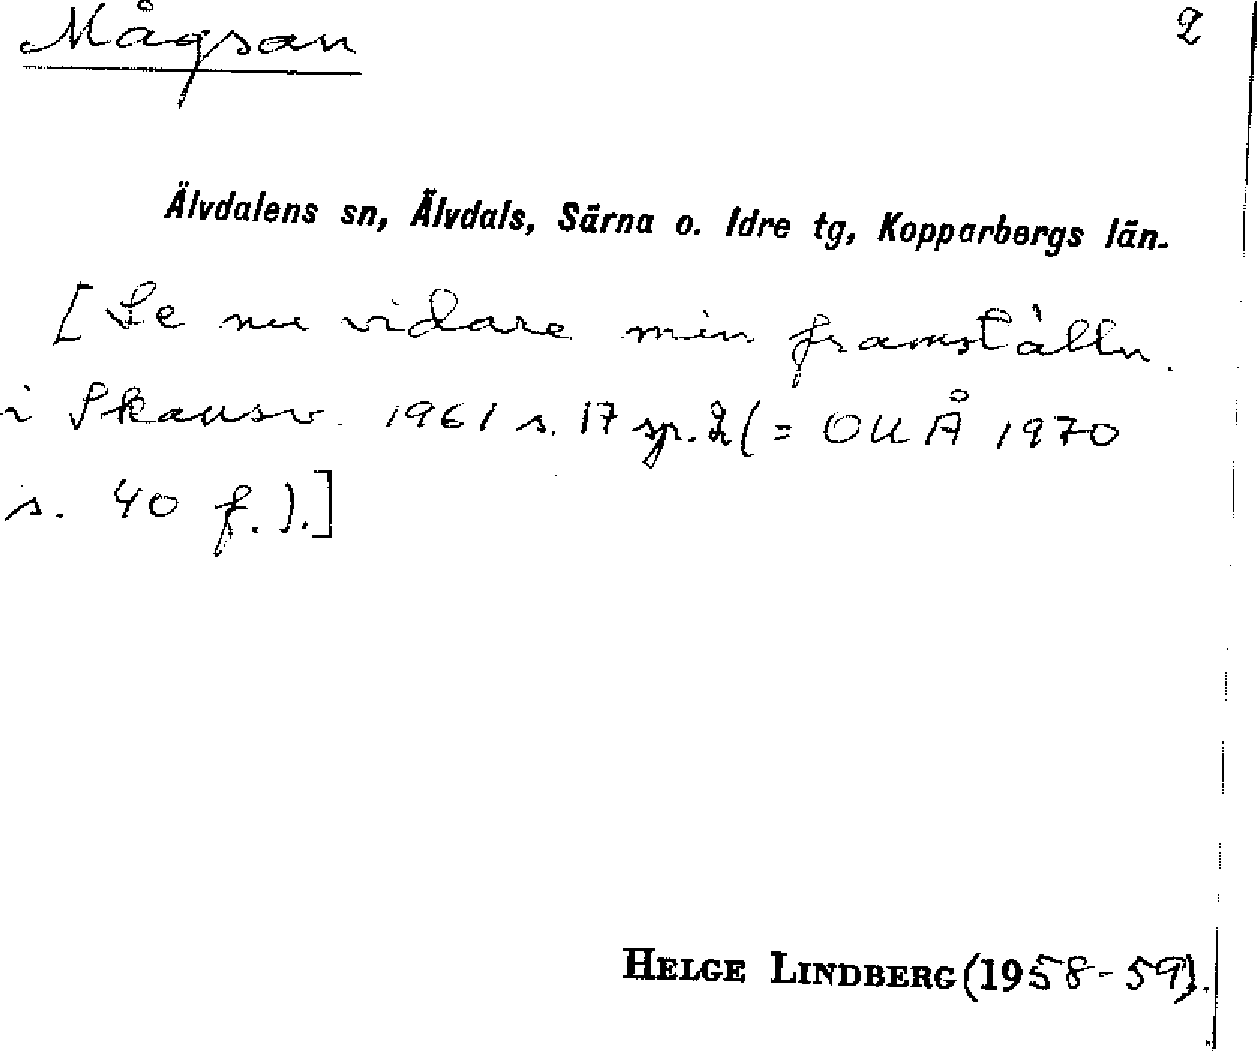 Mågsan
2
Älvdalens sn, Älvdals, Särna o. Idre tg, Kopparbergs län.
[Se nu vidare min framställn.
i Skansv. 1961 s. 17 sp. 2 (= OUÅ 1970
s. 40 f.).]
HELGE LINDBERG (1958-59).